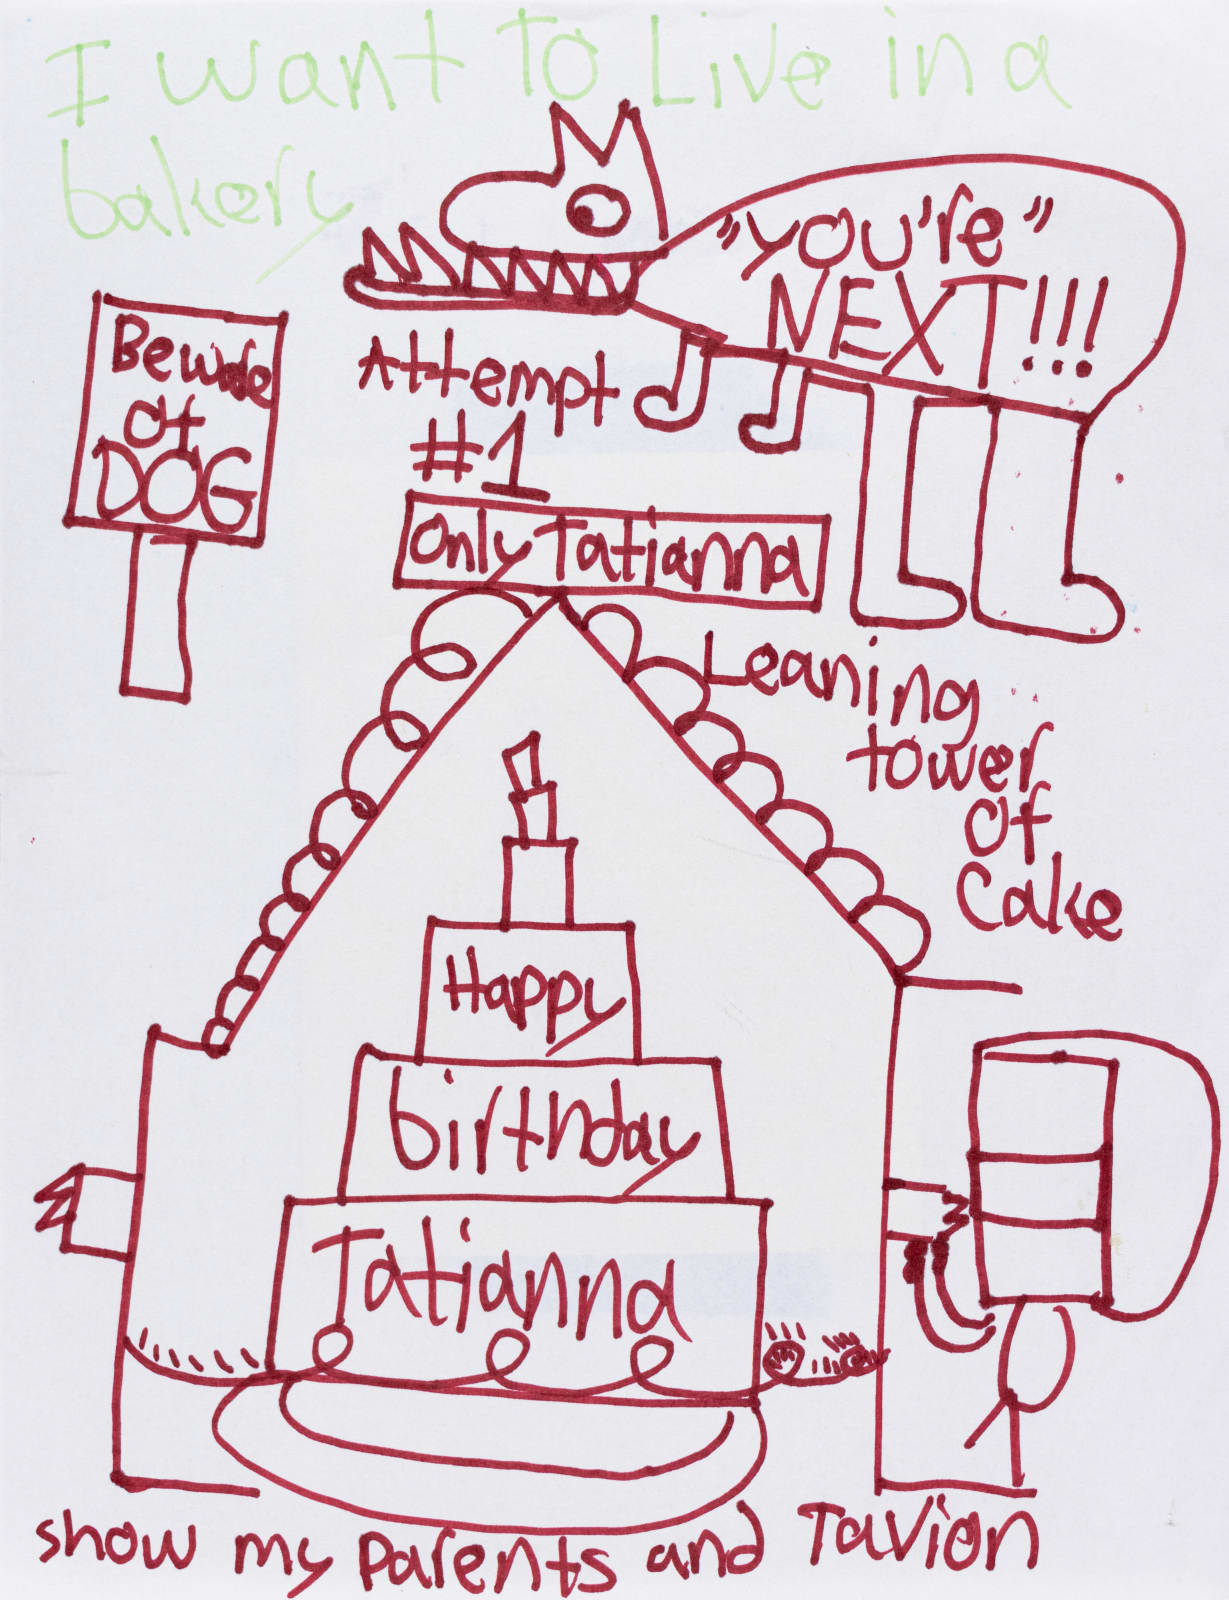 I want To Live in a
bakery
"You're"
NEXT!!!
Beware
of
DOG
Attempt
#1
Only Tatianna
Leaning
tower
of
Cake
Happy
birthday
Tatianna
show my parents and Tavion